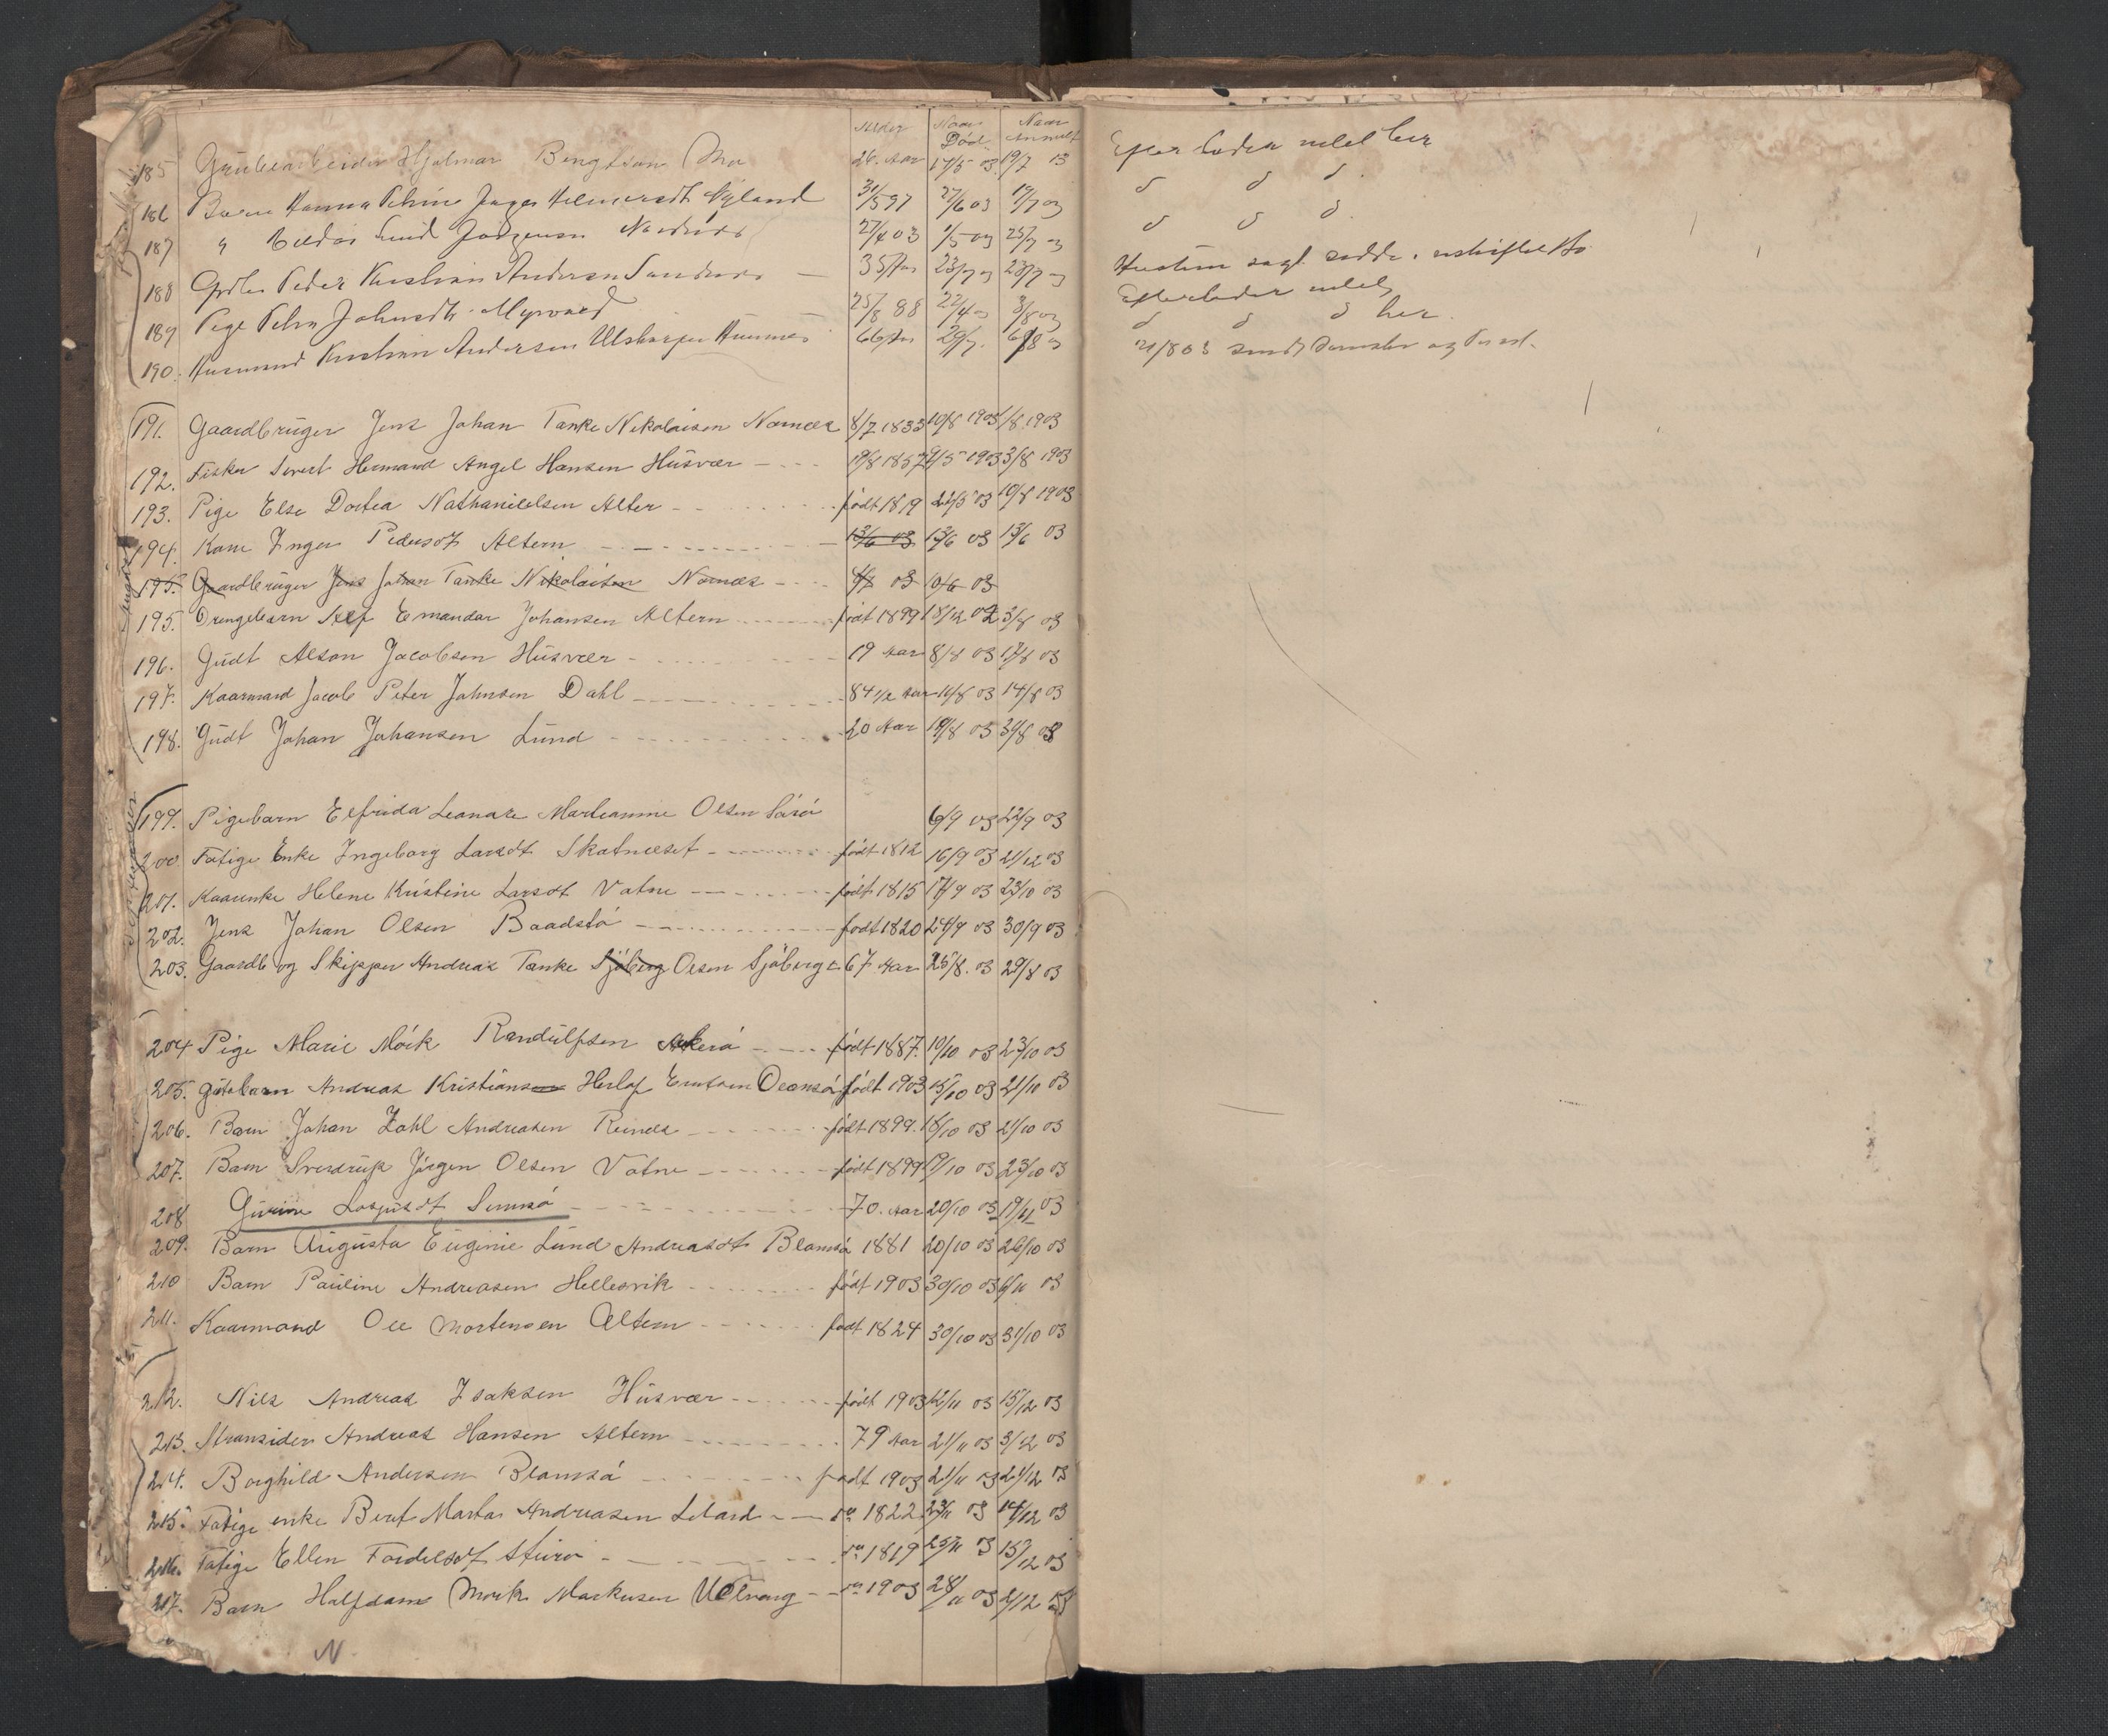 Alder Naar Død Naar Anmelt
185 Grubearbeider Hjalmar Bengtson Mo 26 Aar 17/5 03 19/7 03 Efterlader intet her
186 Barn Hanna Petrine Nyland 31/5 97 27/6 03 19/7 03 d d d
187 " Lund Jørgensen 27/4 03 1/5 03 25/7 03 d d d
188 Peder Kristian Andersen 35 Aar 23/7 03 23/7 03
189 Pige Johnsdtr. Myrvand 25/8 88 22/4 03 3/8 03 Efterlader intet
190. Husmand Kristian Andersen 66 Aar 29/7. 6/8 03 d d d her.
21/8 03 sendt
191. Gaardbruger Jens Johan Tanke Nikolaisen Nornæs 4/7 1833 10/8 1903 1/8 1903
192. Fisker Sivert Hermand Angel Hansen Husvær 19/8 1857 9/5 1903 3/8 1903
193. Pige Else Dortea Nathanielsen Alter født 1819 22/5 03 10/8 1903
194. Kone Inger Pedersdt Altern 13/6 03 13/6 03 13/6 03
195. Gaardbruger Jens Johan Tanke Nikolaisen Nornæs 4/7 03 10/6 03
195. Drengebarn Alf Emandar Johansen Altern født 1899 18/12 02 3/8 03
196. Gudt Alson Jacobsen Husvær 19 Aar 8/8 03 17/8 03
197. Kaarmand Jacob Peter Johnsen Dahl 84 1/2 Aar 11/8 03 14/8 03
198. Gudt Johan Johansen Lund 20 Aar 19/8 03 31/8 03
199. Pigebarn Elfrida Leonare Marteanne Olsen 6/9 03 22/9 03
200 Fatige Enke Ingeborg Larsdt Skatnæset født 1812 16/9 03 21/12 03
201. Kaarenke Helene Kristine Larsdt Vatne født 1815 17/9 03 23/10 03
202. Jens Johan Olsen Baadstø født 1820 24/9 03 30/9 03
203. Gaardb og Skipper Andreas Tanke Sjøberg Olsen Sjøberg 67 Aar 25/8. 03 29/8 03
204 Pige Marie Mørk Randulfsen Akerø født 1887. 10/10 03 23/10 03
205. Gutebarn Andreas Kristiansen Herlof født 1903 15/10 03 21/10 03
206. Barn Johan Zahl Andreasen Reines født 1899. 16/10 03 21/10 03
207. Barn Sverdrup Jørgen Olsen Vatne født 1899 19/10 03 23/10 03
208 Gurine 70. Aar 20/10 03 19/11 03
209. Barn Augusta Euginie Lund Andreasdt Blomsø 1881 20/10 03 26/10 03
210 Barn Pauline Andreasen Hellesvik født 1903 30/10 03 6/11 03
211. Kaarmand Ole Mortensen Altern født 1824 30/10 03 31/10 03
212. Nils Andreas Isaksen Husvær født 1903 12/11 03 15/12 03
213. Stransider Andreas Hansen Altern 79 Aar 21/11 03 3/12 03
214. Borghild Andersen Blomsø født 1903 21/11 03 21/12 03
215. Fatige enke Berit Marta Andreasen Leland do 1822 23/11 03 14/12 03
216. Fatige Ellen do 1819 25/11 03 15/12 03
217. Barn Halfdan Mørk Markusen Ulvang do 1903 28/11 03 2/12 03
N